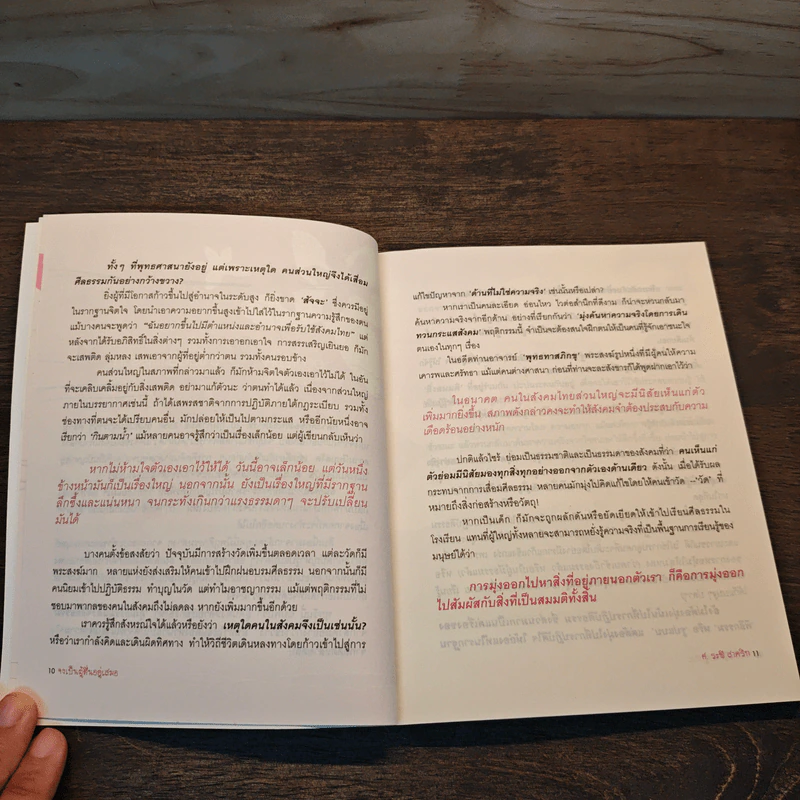 ทั้งๆ ที่พุทธศาสนายังอยู่ แต่เพราะเหตุใด คนส่วนใหญ่จึงได้เสื่อม
ศีลธรรมกันอย่างกว้างขวาง?
ยิ่งผู้ที่มีโอกาสก้าวขึ้นไปสู่อำนาจในระดับสูง ก็ยิ่งขาด 'สัจจะ' ซึ่งควรมีอยู่
ในรากฐานจิตใจ โดยนำเอาความอยากขึ้นสูงเข้าไปใส่ไว้ในรากฐานความรู้สึกของตน
แม้บางคนจะพูดว่า "ฉันอยากขึ้นไปมีตำแหน่งและอำนาจเพื่อรับใช้สังคมไทย" แต่
หลังจากได้รับอภิสิทธิ์ในสิ่งต่างๆ รวมทั้งการเอาอกเอาใจ การสรรเสริญเยินยอ ก็มัก
จะเสพติด ลุ่มหลง เสพเอาจากผู้ที่อยู่ต่ำกว่าตน รวมทั้งคนรอบข้าง
คนส่วนใหญ่ในสภาพที่กล่าวมาแล้ว ก็มักห้ามจิตใจตัวเองเอาไว้ไม่ได้ ในอัน
ที่จะเคลิบเคลิ้มอยู่กับสิ่งเสพติด อย่ามาแก้ตัวนะ ว่าตนทำได้แล้ว เนื่องจากส่วนใหญ่
ภายในบรรยากาศเช่นนี้ ถ้าได้เสพรสชาติจากการปฏิบัติภายใต้กฎระเบียบ รวมทั้ง
ช่องทางที่ตนจะได้เปรียบคนอื่น มักปล่อยให้เป็นไปตามกระแส หรืออีกนัยหนึ่งอาจ
เรียกว่า 'กินตามน้ำ' แม้หลายคนอาจรู้สึกว่าเป็นเรื่องเล็กน้อย แต่ผู้เขียนกลับเห็นว่า
หากไม่ห้ามใจตัวเองเอาไว้ให้ได้ วันนี้อาจเล็กน้อย แต่วันหนึ่ง
ข้างหน้ามันก็เป็นเรื่องใหญ่ นอกจากนั้น ยังเป็นเรื่องใหญ่ที่มีรากฐาน
ลึกซึ้งและแน่นหนา จนกระทั่งเกินกว่าแรงธรรมดาๆ จะปรับเปลี่ยน
มันได้
บางคนตั้งข้อสงสัยว่า ปัจจุบันมีการสร้างวัดเพิ่มขึ้นตลอดเวลา แต่ละวัดก็มี
พระสงฆ์มาก หลายแห่งยังส่งเสริมให้คนเข้าไปฝึกฝนอบรมศีลธรรม นอกจากนั้นก็มี
คนนิยมเข้าไปปฏิบัติธรรม ทำบุญในวัด แต่ทำไมอาชญากรรม แม้แต่พฤติกรรมที่ไม่
ชอบมาพากลของคนในสังคมถึงไม่ลดลง หากยังเพิ่มมากขึ้นอีกด้วย
เราควรรู้สึกสังหรณ์ใจได้แล้วหรือยังว่า เหตุใดคนในสังคมจึงเป็นเช่นนั้น?
หรือว่าเรากำลังคิดและเดินผิดทิศทาง ทำให้วิถีชีวิตเดินหลงทางโดยก้าวเข้าไปสู่การ
10 จงเป็นผู้ตื่นอยู่เสมอ
แก้ไขปัญหาจาก 'ด้านที่ไม่ใช่ความจริง' เช่นนั้นหรือเปล่า?
หากเราเป็นคนละเอียด อ่อนไหว ไวต่อสำนึกที่ดีงาม ก็น่าจะหวนกลับมา
ค้นหาความจริงจากอีกด้าน อย่างที่เรียกกันว่า 'มุ่งค้นหาความจริงโดยการเดิน
ทวนกระแสสังคม' พฤติกรรมนี้ จำเป็นจะต้องสนใจฝึกตนให้เป็นคนที่รู้จักเอาชนะใจ
ตนเองในทุกๆ เรื่อง
ในอดีตท่านอาจารย์ 'พุทธทาสภิกขุ' พระสงฆ์รูปหนึ่งที่มีผู้คนให้ความ
เคารพและศรัทธา แม้แต่คนต่างศาสนา ก่อนที่ท่านจะละสังขารก็ได้พูดฝากเอาไว้ว่า
ในอนาคต คนในสังคมไทยส่วนใหญ่จะมีนิสัยเห็นแก่ตัว
เพิ่มมากยิ่งขึ้น สภาพดังกล่าวคงจะทำให้สังคมจำต้องประสบกับความ
เดือดร้อนอย่างหนัก
ปกติแล้วไซร้ ย่อมเป็นธรรมชาติและเป็นธรรมดาของสังคมที่ว่า คนเห็นแก่
ตัวย่อมมีนิสัยมองทุกสิ่งทุกอย่างออกจากตัวเองด้านเดียว ดังนั้น เมื่อได้รับผล
กระทบจากการเสื่อมศีลธรรม หลายคนมักมุ่งไปคิดแก้ไขโดยให้คนเข้าวัด –'วัด' ที่
หมายถึงสิ่งก่อสร้างหรือวัตถุ!
หากเป็นเด็ก ก็มักจะถูกผลักดันหรือยัดเยียดให้เข้าไปเรียนศีลธรรมใน
โรงเรียน แทนที่ผู้ใหญ่ทั้งหลายจะสามารถหยั่งรู้ความจริงที่เป็นพื้นฐานการเรียนรู้ของ
มนุษย์ได้ว่า
การมุ่งออกไปหาสิ่งที่อยู่ภายนอกตัวเรา ก็คือการมุ่งออก
ไปสัมผัสกับสิ่งที่เป็นสมมติทั้งสิ้น
ศ. ระพี สาคริก 11